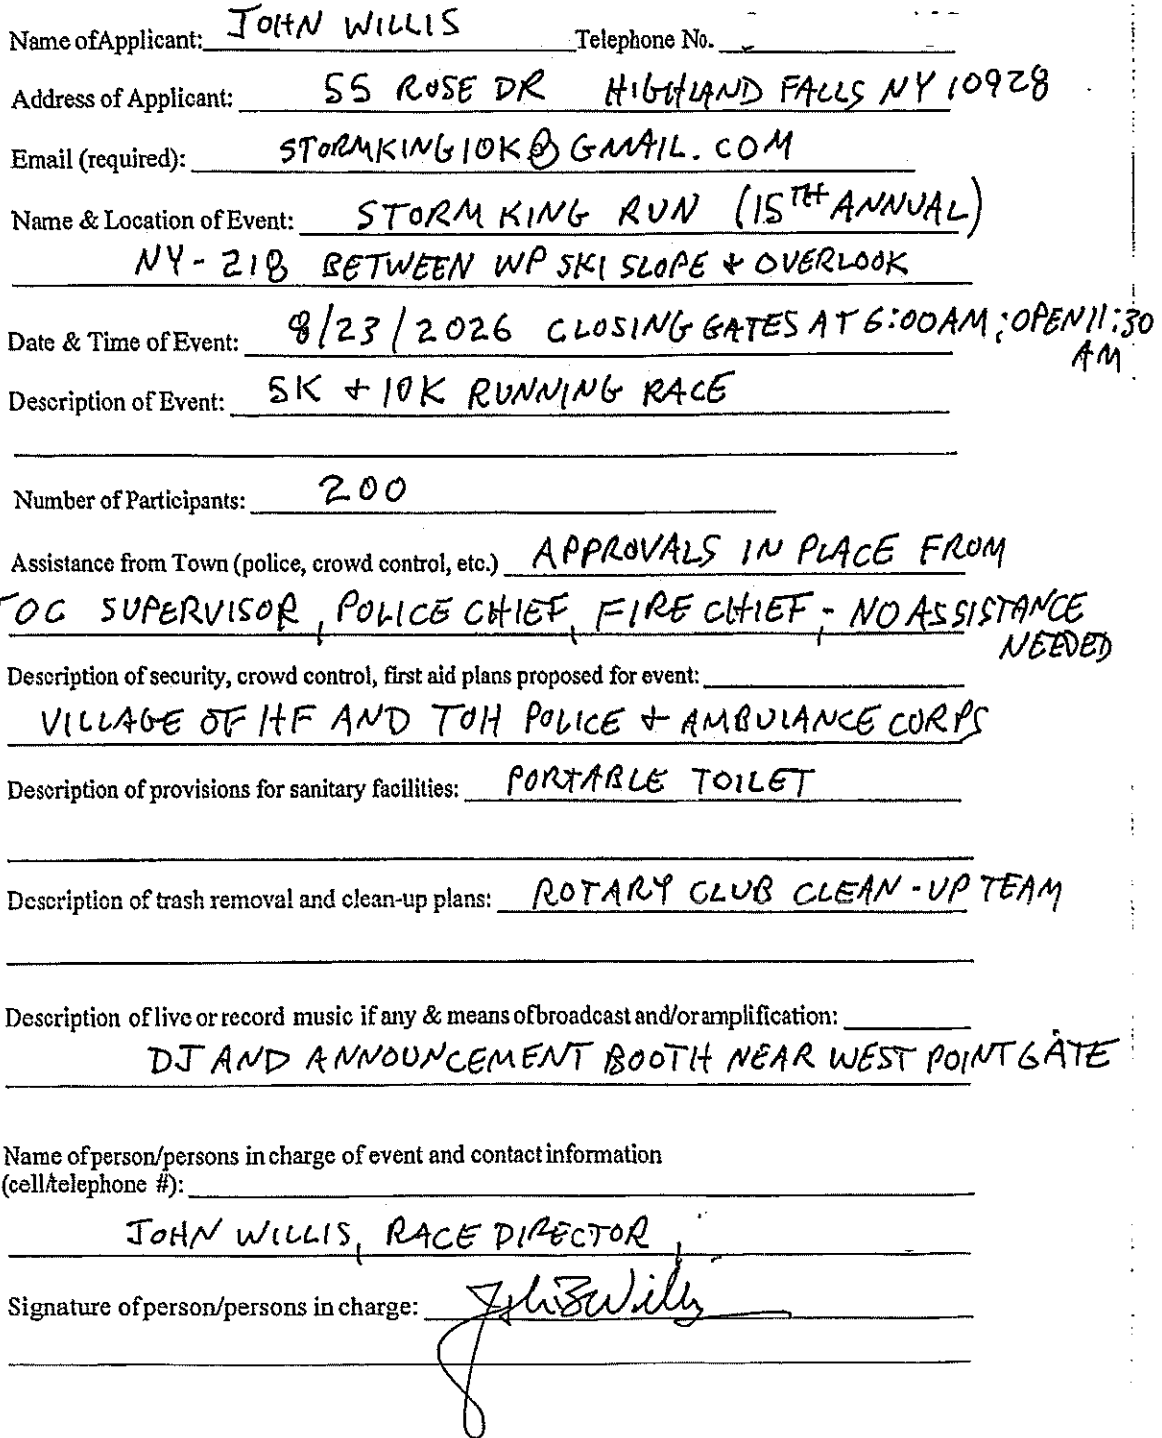 Name of Applicant: JOHN WILLIS Telephone No.
Address of Applicant: 55 ROSE DR HIGHLAND FALLS NY 10928
Email (required): STORMKING10K@GMAIL.COM
Name & Location of Event: STORM KING RUN (15TH ANNUAL)
NY-218 BETWEEN WP SKI SLOPE & OVERLOOK
Date & Time of Event: 8/23/2026 CLOSING GATES AT 6:00AM; OPEN 11:30
AM
Description of Event: 5K + 10K RUNNING RACE
Number of Participants: 200
Assistance from Town (police, crowd control, etc.) APPROVALS IN PLACE FROM
TOC SUPERVISOR, POLICE CHIEF, FIRE CHIEF, - NO ASSISTANCE
NEEDED
Description of security, crowd control, first aid plans proposed for event:
VILLAGE OF HF AND TOH POLICE + AMBULANCE CORPS
Description of provisions for sanitary facilities: PORTABLE TOILET
Description of trash removal and clean-up plans: ROTARY CLUB CLEAN-UP TEAM
Description of live or record music if any & means of broadcast and/or amplification:
DJ AND ANNOUNCEMENT BOOTH NEAR WEST POINT GATE
Name of person/persons in charge of event and contact information
(cell/telephone #):
JOHN WILLIS, RACE DIRECTOR,
Signature of person/persons in charge: John B Willis